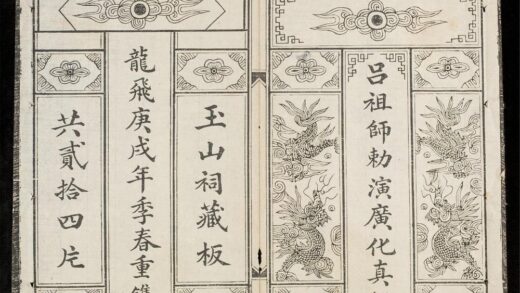 呂祖師勅演廣化真
玉山祠藏板
龍飛庚戌年季春重
共貳拾四片